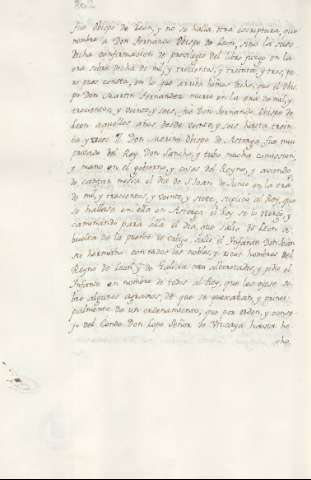 fue Obispo de Leon, y no se halla otra escriptura, que
nombre a Don Fernando Obispo de Leon, sino la suso
dicha confirmacion de previlegio del libro fuego en la
era sobre dicha de mil, y trecientos, y treinta, y tres, pe
ro mas consta, en lo que arriba fuimos dicho, que el Obis
po Don Martin Fernandez murio en la era de mil, y
trecientos, y veinte, y siete, fue Don Fernando Obispo de
Leon aquellos años desde veinte, y seis hasta trein
ta, y tres. Don Martino Obispo de Astorga fue muy
privado del Rey Don Sancho, y tubo mucha comision,
y mano en el gobierno, y cosas del Reyno, y aviendo
de cantar missa el dia de S. Juan de Junio en la era
de mil, y trecientos, y veinte, y siete, suplico al Rey, que
se hallase en ella en Astorga, el Rey se lo otorgo, y
caminando para alla el dia, que salio de Leon a
buelta de la puente de orbigo, salio el Infante Don Juan
su hermano con todos los nobles, y ricos hombres del
Reyno de Leon, y de Galicia mui alborotados, y pidio el
Infante en nombre de todos al Rey, que los oyese so
bre algunos agravios, de que se quexaban, y princi
palmente de un ordenamiento, que por orden, y conse
jo del Conde Don Lope Señor de Vizcaya habia he
cho